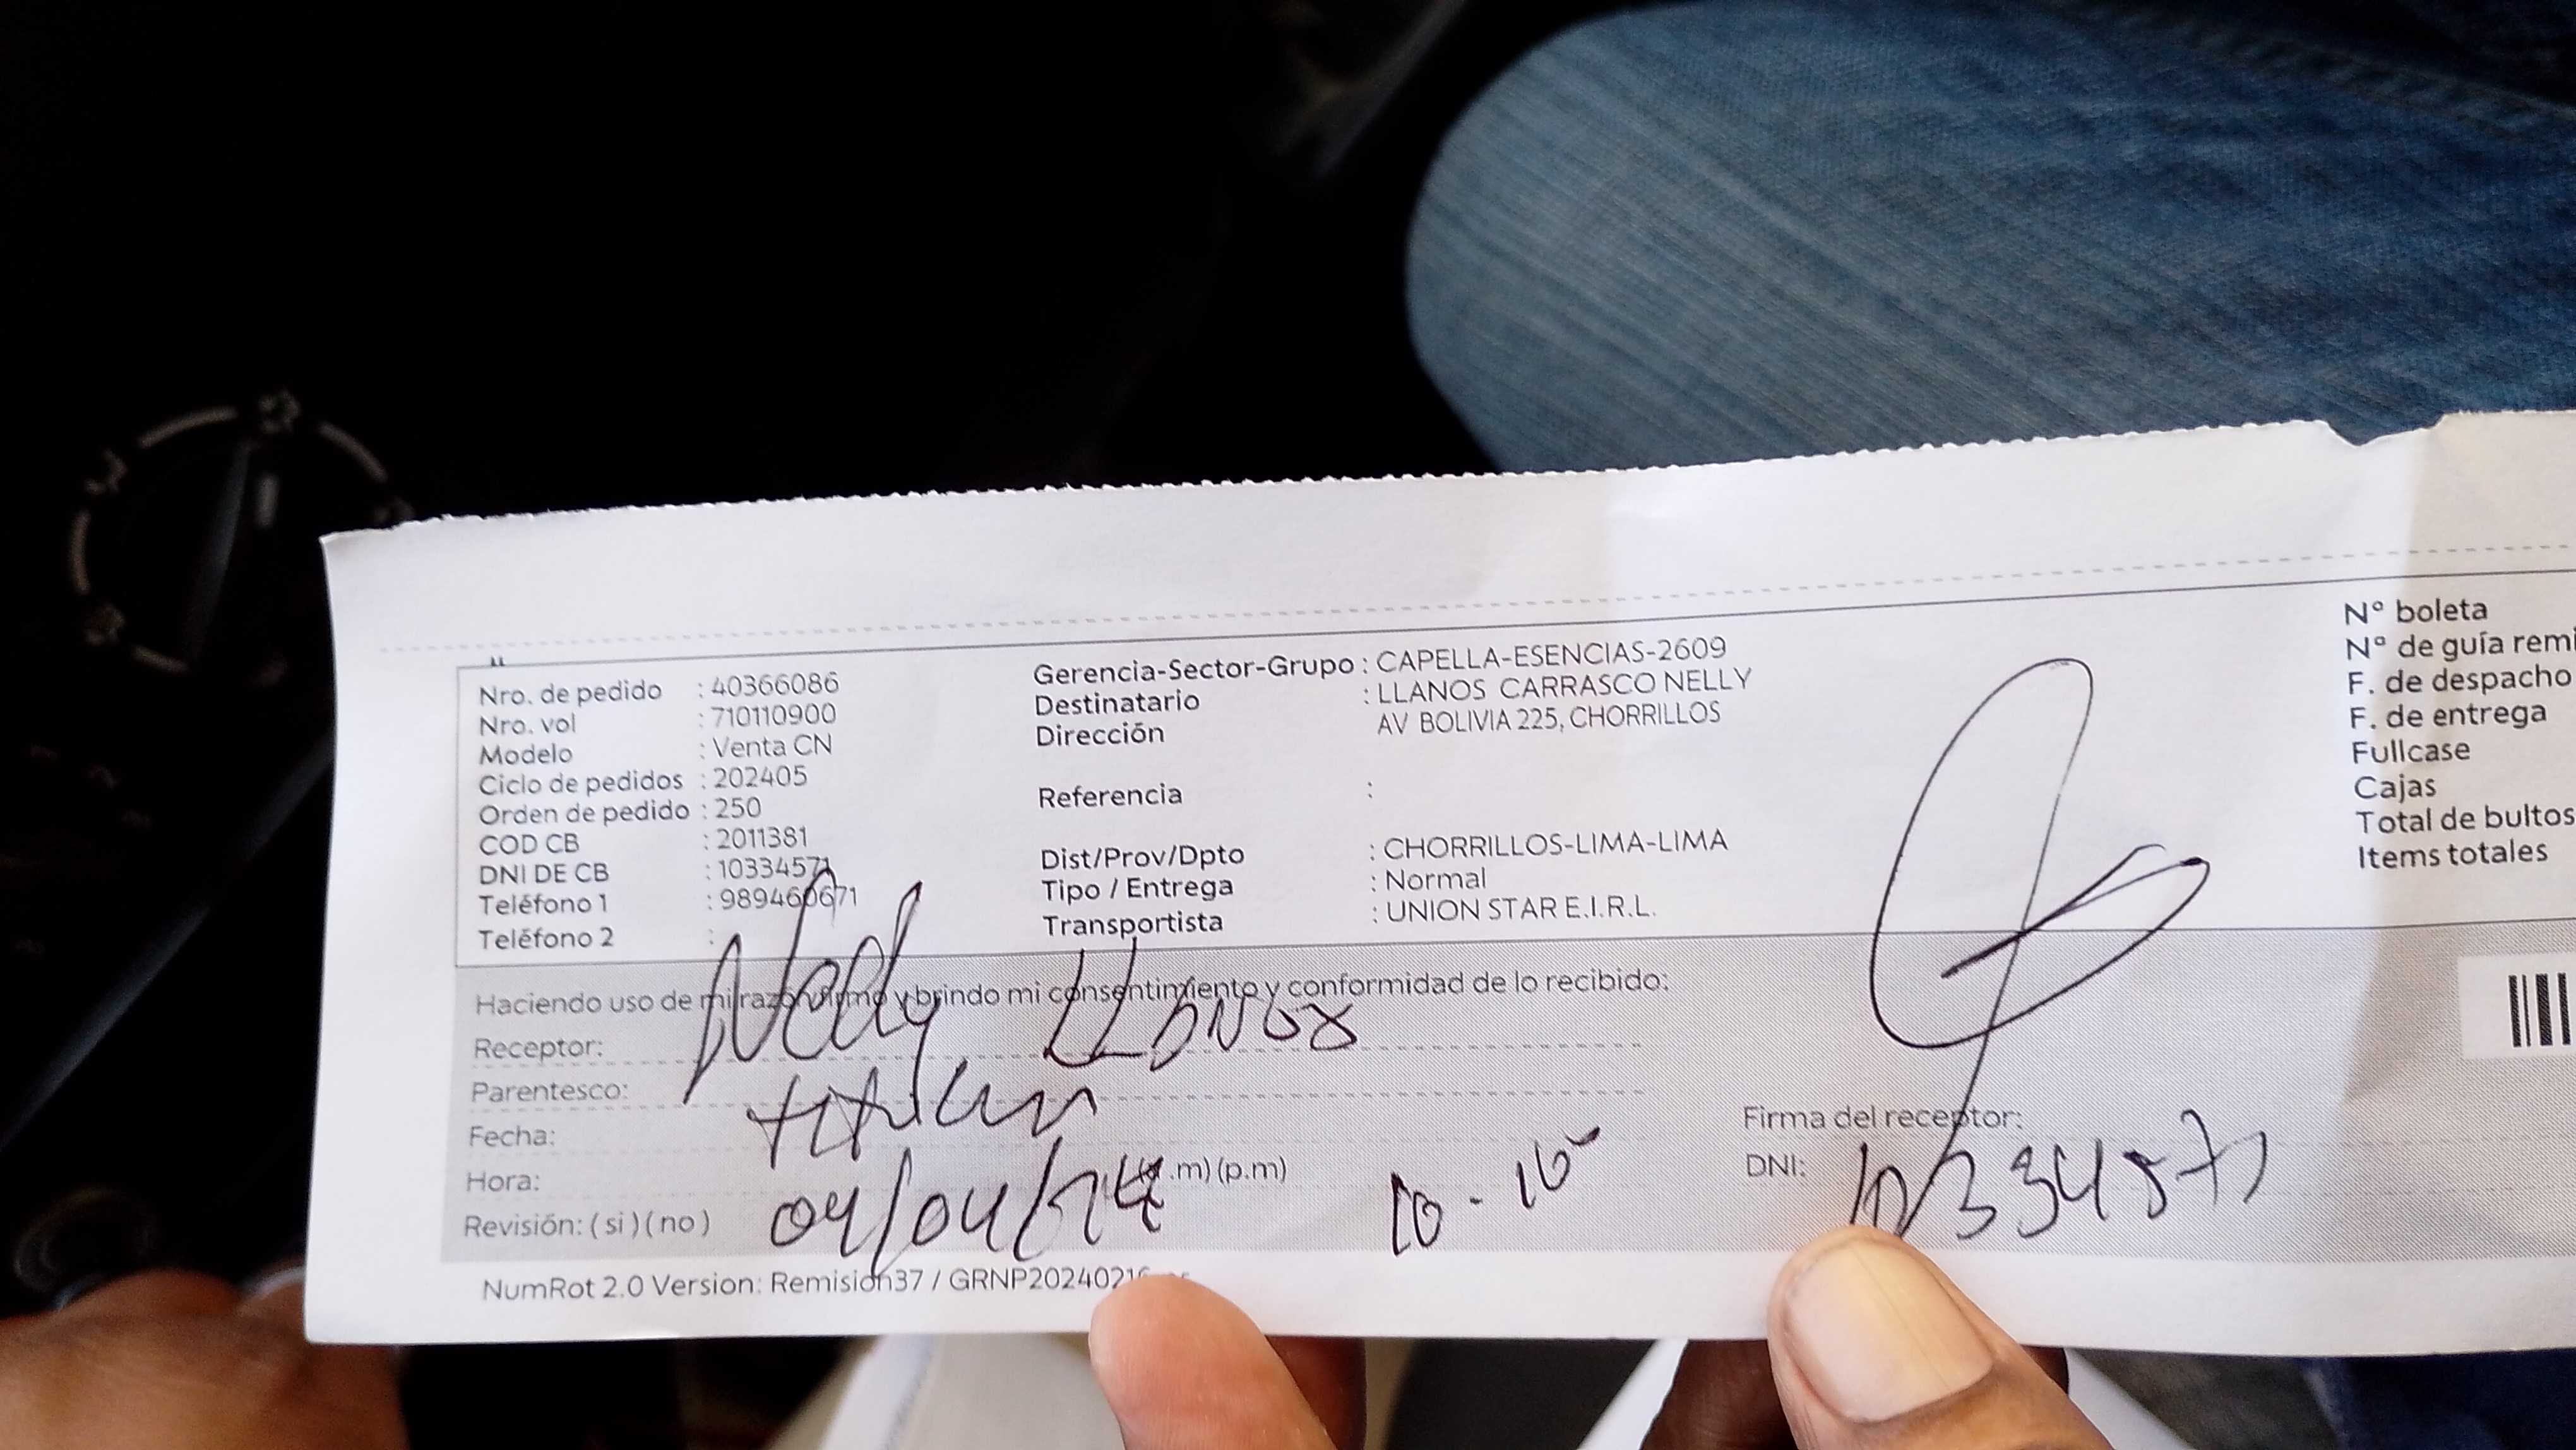 Nro. de pedido : 40366086
Nro. vol : 710110900
Modelo : Venta CN
Ciclo de pedidos : 202405
Orden de pedido : 250
COD CB : 2011381
DNI DE CB : 10334571
Teléfono 1 : 989460671
Teléfono 2 :
Gerencia-Sector-Grupo : CAPELLA-ESENCIAS-2609
Destinatario : LLANOS CARRASCO NELLY
Dirección AV BOLIVIA 225, CHORRILLOS
Referencia :
Dist/Prov/Dpto : CHORRILLOS-LIMA-LIMA
Tipo / Entrega : Normal
Transportista : UNION STAR E.I.R.L.
N° boleta
N° de guía remi
F. de despacho
F. de entrega
Fullcase
Cajas
Total de bultos
Items totales
Haciendo uso de mi razón firmo y brindo mi consentimiento y conformidad de lo recibido:
Receptor: Nelly LLanos
Parentesco: titular
Fecha: 04/04/24
Hora: (a.m) (p.m) 10-10
Revisión: ( si ) ( no )
Firma del receptor:
DNI: 10334571
NumRot 2.0 Version: Remision37 / GRNP2024021